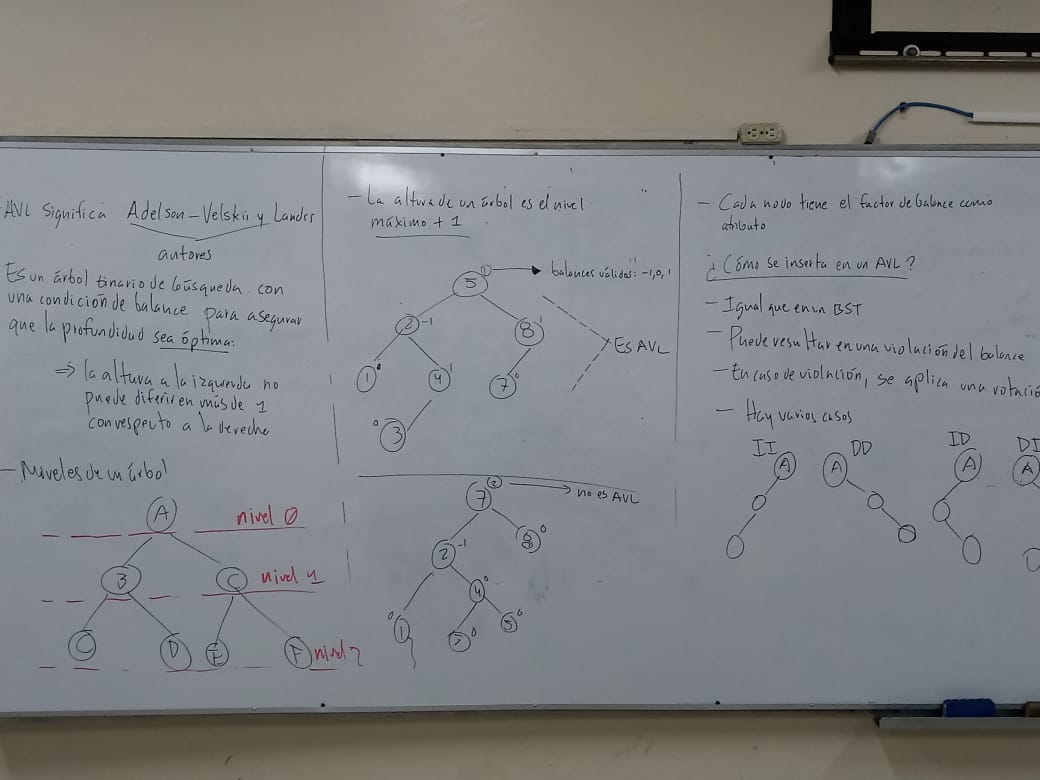 AVL Significa Adelson-Velskii y Landis
autores
Es un árbol binario de búsqueda con
una condición de balance para asegurar
que la profundidad sea óptima.
⇒ la altura a la izquierda no
puede diferir en más de 1
con respecto a la derecha
- Niveles de un árbol
A nivel 0
B C nivel 1
C D E F nivel 2
- La altura de un árbol es el nivel
máximo + 1
5 1 → balances válidos: -1,0,1
2 -1 8 1
Es AVL
1 0 4 1 7 0
0 3
7 2 → no es AVL
2 -1 8 0
4 0
0 1 0 5 0
- Cada nodo tiene el factor de balance como
atributo
¿Cómo se inserta en un AVL?
- Igual que en un BST
- Puede resultar en una violación del balance
- En caso de violación, se aplica una rotació
- Hay varios casos
II DD ID DI
A A A A